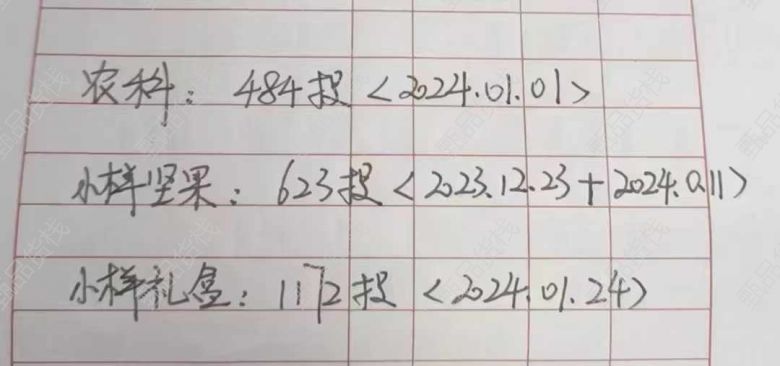 农科：484提<2024.01.01>
小样坚果：623提<2023.12.23+2024.0.11>
小样礼盒：1172提<2024.01.24>